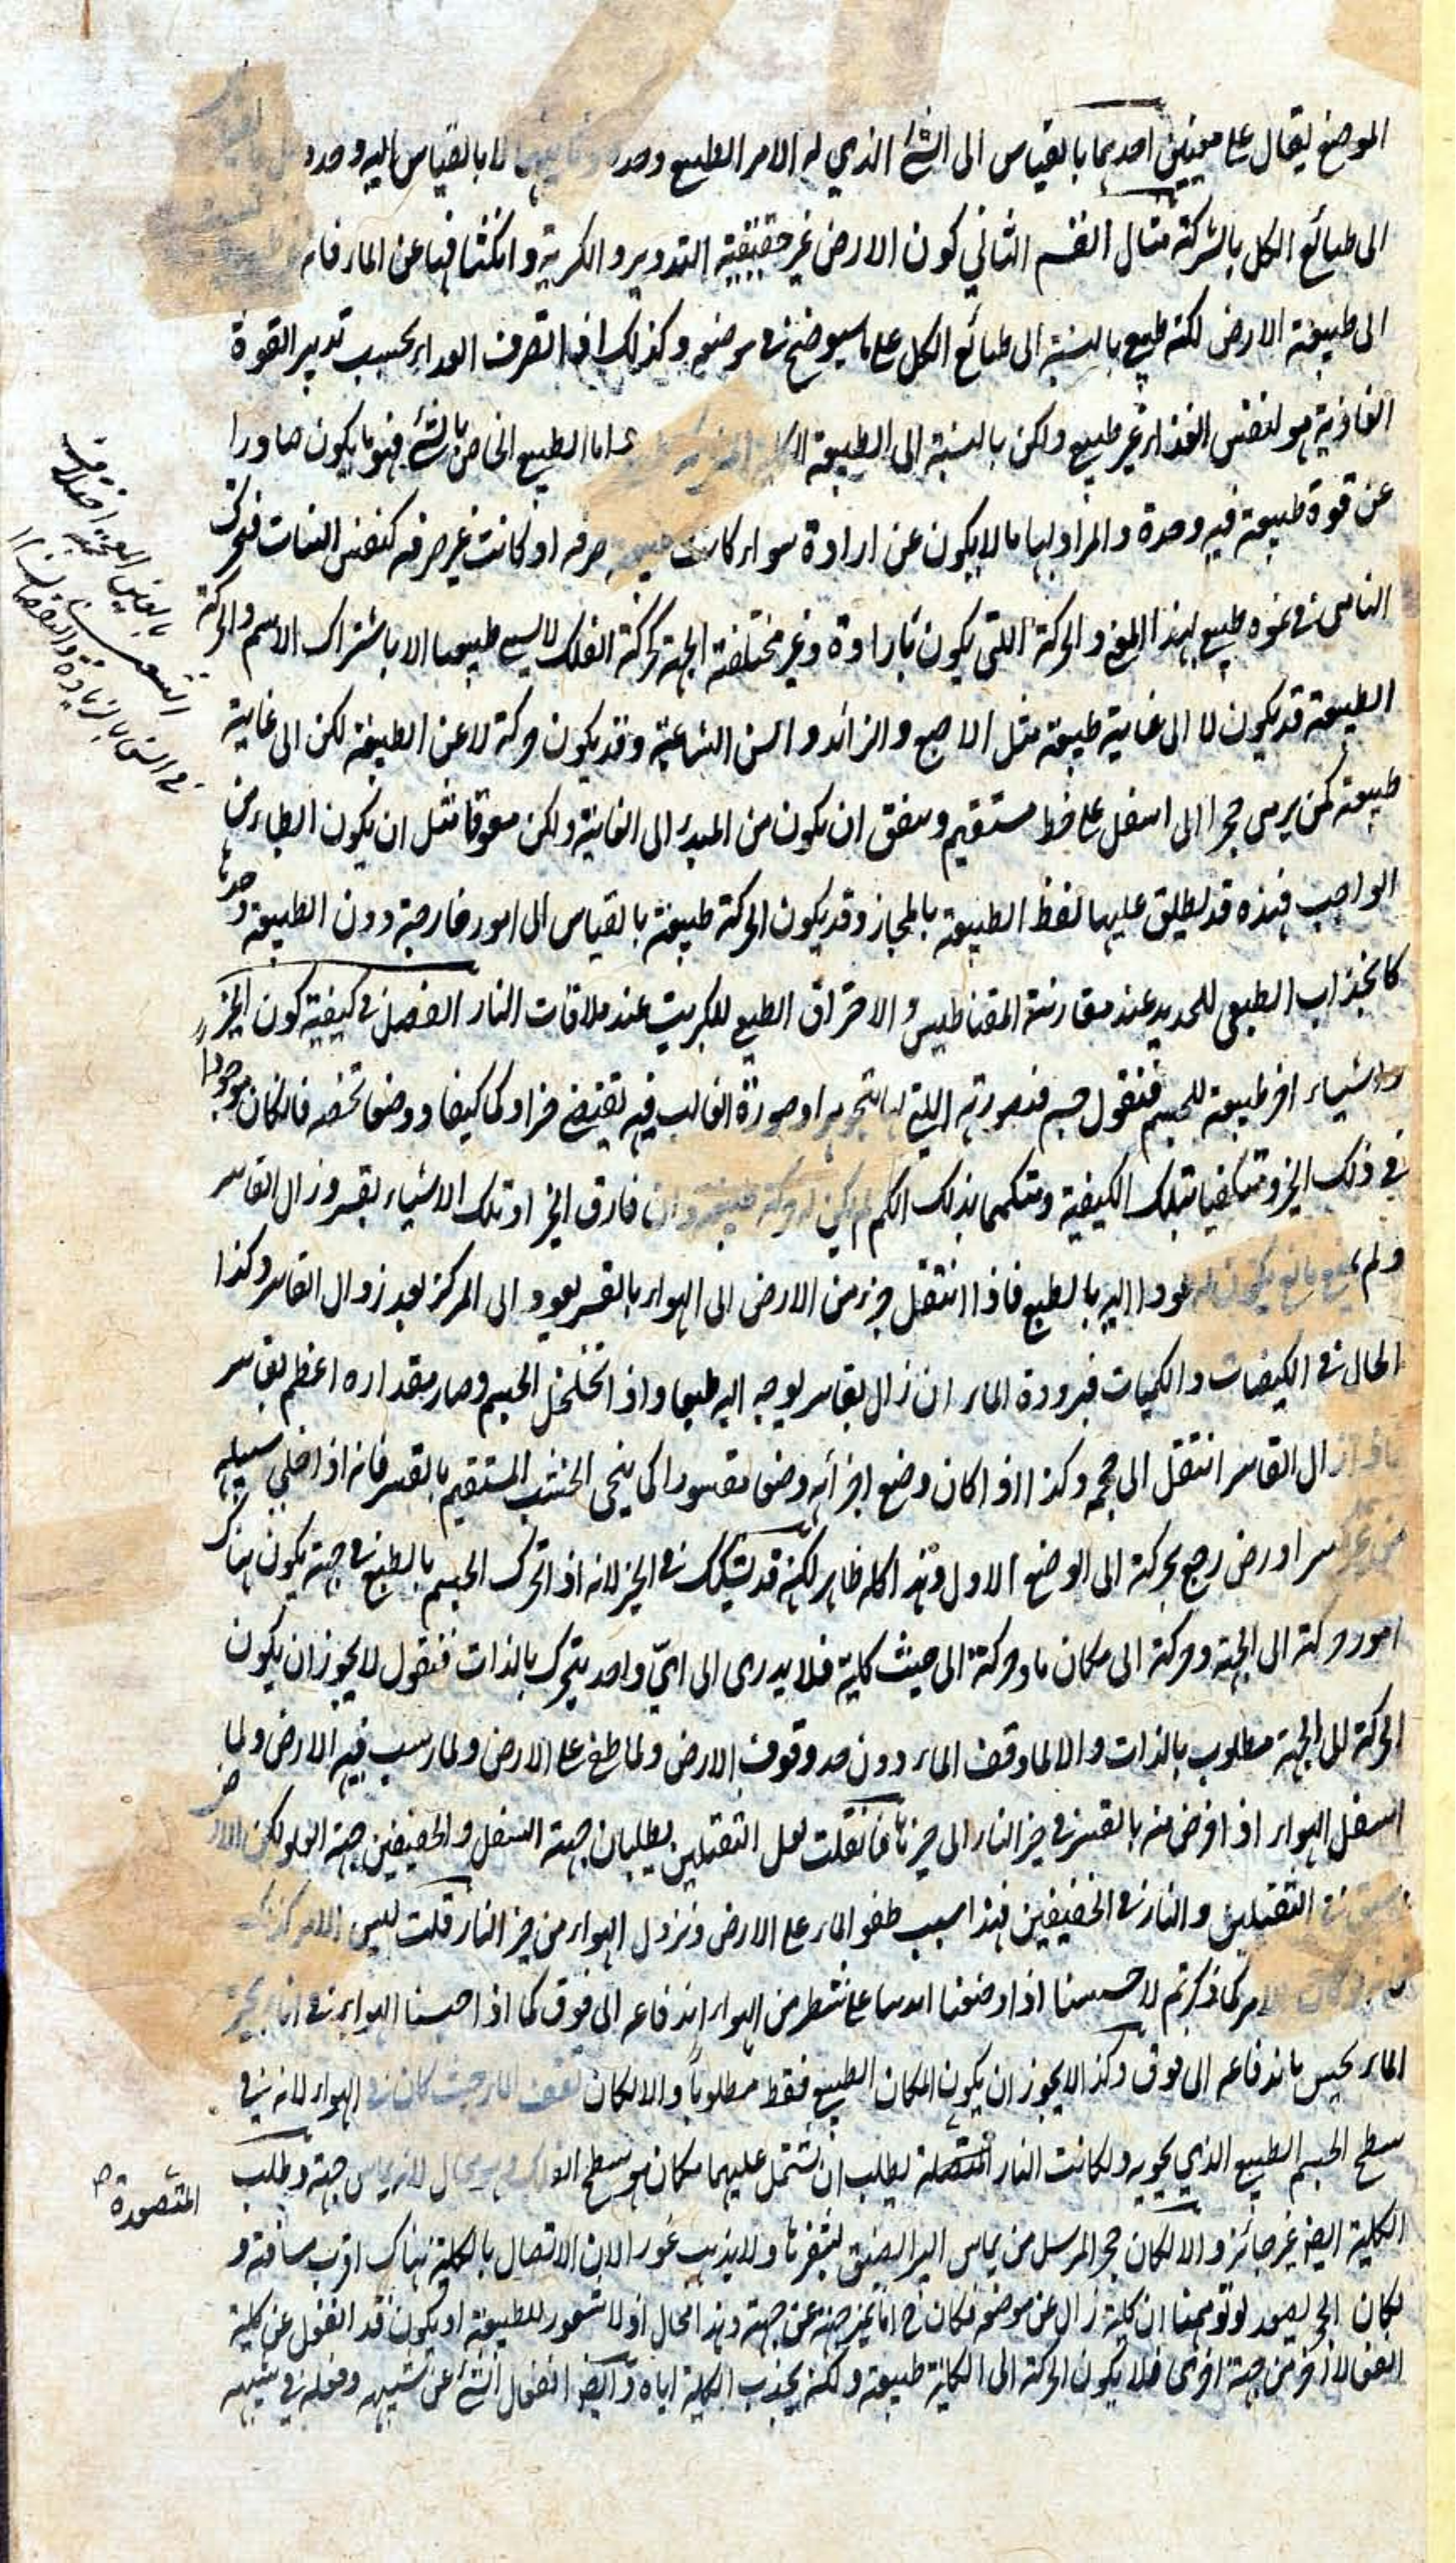 الموضع يقال على معنيين احدهما بالقياس الى الشئ الذي له الامر الطبيعي وحده وثانيهما لا بالقياس اليه وحده بل بالقياس
الى طبائع الكل بالشركة مثال القسم الثاني كون الارض غير حقيقية التدوير والكرية وانكشافها عن الماء فانه
الى طبيعة الارض لكنه طبيعي بالنسبة الى طبائع الكل على ما سيوضح في موضعه وكذلك اذا تصرف الغذاء بحسب تدبير القوة
الغاذية هو لنفس الغذاء غير طبيعي ولكن بالنسبة الى الطبيعة الكلية اما الطبيعي الخاص بالشئ فهو ما يكون صادرا
عن قوة طبيعية فيه وحده والمراد بها ما لا يكون عن ارادة سواء كانت طبيعية صرفه او كانت غير صرفه كنفس النبات فتحرك
النامى فى نموه طبيعي بهذا المعنى والحركة التي يكون بارادة وغير مختلفة الجهة كحركة الفلك لا يسمى طبيعيا الا باشتراك الاسم والحركة
الطبيعة قد يكون لا الى غاية طبيعية مثل الاصبع الزائد والسن الشاغية وقد يكون حركة لا عن الطبيعة لكن الى غاية
طبيعية كمن يرمى حجرا الى اسفل على خط مستقيم ويتفق ان يكون من المبدء الى الغاية ولكن معوقا مثل ان يكون ابطاء من
الواجب فهذه قد يطلق عليها لفظ الطبيعة بالمجاز وقد يكون الحركة طبيعية بالقياس الى امور خارجة دون الطبيعة وحدها
كانجذاب الطبعى للحديد عند مقارنة المقناطيس والاحتراق الطبيعي للكبريت عند ملاقات النار الفصل فى كيفية كون الحيز
واشياء اخر طبيعة للجسم فنقول جسم فصورته التي بها تتجوهر او صورة الغالب فيه تقتضى حيزا وكما وكيفا ووضعا تخصه فان كان موجودا
فى ذلك الحيز ومتكيفا بتلك الكيفية ومتكمما بذلك الكم لم يكن له حركة طبيعية وان فارق الحيز او تلك الاشياء بقسر وزال القاسر
ولم يمنع مانع يكون له عودا اليه بالطبع فاذا انتقل جزء من الارض الى الهواء بالقسر يعود الى المركز بعد زوال القاسر وكذا
الحال فى الكيفيات والكميات فبرودة الماء ان زال بقاسر يوجه اليه طبعا واذا تخلخل الجسم وصار مقداره اعظم بقاسر
فاذا زال القاسر انتقل الى حجمه وكذا اذا كان وضع اجزائه وضعا مقسورا كى ينحى الخشب المستقيم بالقسر فانه اذا خلى سبيله
من غير كسر او رض رجع بحركته الى الوضع الاول وهذا كله ظاهر لكنه قد يشكك فى الحيز لانه اذا تحرك الجسم بالطبع فى جهة يكون هناك
امور حركة الى الجهة وحركة الى مكان ما وحركة الى حيث كلية فلا يدرى الى ايّ واحد يتحرك بالذات فنقول لا يجوز ان يكون
الحركة الى الجهة مطلوب بالذات والا لما وقف الماء دون حد وقوف الارض ولما طفى على الارض ولما رسب فيه الارض ولما
اسفل الهواء اذا فرض منه بالقسر فى حيز النار الى حيزها فان قلت لعل الثقيلين يطلبان جهة السفل والخفيفين جهة العلو ولكن الارض
يسبق فى الثقيلين والنار فى الخفيفين فهذا سبب طفو الماء على الارض ونزول الهواء من حيز النار قلت ليس الامر كذلك
فانه لو كان الامر كما ذكرتم لاحسسنا اذا وضعنا ايدينا على شطر من الهواء اندفاعه الى فوق كما اذا حبسنا الهواء فى اناء تحت
الماء يحس باندفاعه الى فوق وكذا لا يجوز ان يكون المكان الطبيعي فقط مطلوبا والا لكان تقف الماء حيث كان فى الهواء لانه فى
سطح الجسم الطبيعي الذي يحويه ولكانت النار المتصلة يطلب ان تشتمل عليهما مكان هو سطح الفلك وهو محال لانه يماس جهة وطلب
الكلية ايضا غير جائز والا لكان حجر المرسل من رأس البئر يلتصق بشفيرها ولا يذهب غورا لان الاتصال بالكلية هناك اقرب مسافة و
لكان الحجر يصعد لو توهمنا ان كلية زال عن موضعه فكان ح اما تميز جهة عن جهة وهذا محال اذ لا شعور للطبيعة او يكون قد انفعل عن كلية
انفعالا آخر من جهة اخرى فلا يكون الحركة الى الكلية طبيعية ولكنه يجذب الكلية اياه وايضا انفعال الشئ عن شبيهه وفعله فى شبيهه
المتصورة